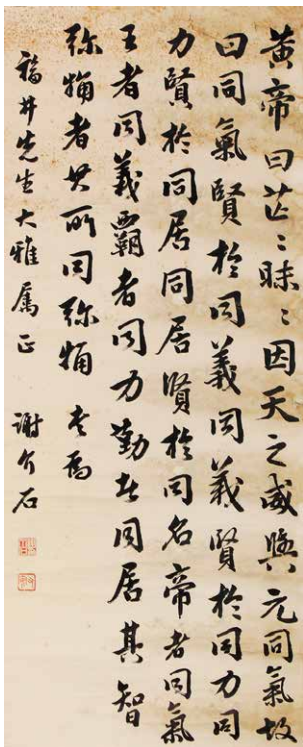 黃帝曰芒〻昧〻因天之威與元同氣故
曰同氣賢於同義同義賢於同力同
力賢於同居同居賢於同名帝者同氣
王者同義霸者同力勤者同居其智
弥觕者其所同弥觕 書為
福井先生大雅属正 謝介石